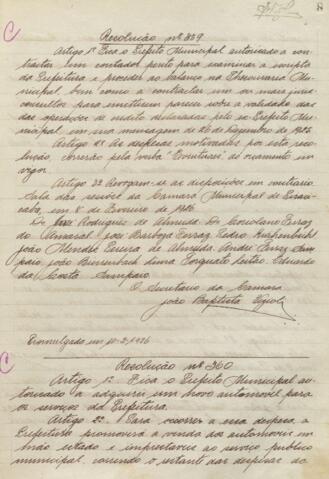 Resolução nº 359
Artigo 1º Fica o Prefeito Municipal autorizado a con-
tractar um contador perito para examinar a escripta
da Prefeitura e proceder ao balanço na Thesouraria Mu-
nicipal, bem como a contractar um ou mais juris-
consultos para emittirem parecer sobre a validade das
das operações de credito declaradas pelo ex Prefeito Mu-
nicipal em sua mensagem de 26 de Dezembro de 1925.
Artigo 2º As despesas motivadas por esta reso-
lução, correrão pela verba "Eventuaes" do orçamento em
vigor.
Artigo 3º Revogam-se as disposições em contrario
Sala das sessões da Camara Municipal de Piraci-
caba, em 8 de Fevereiro de 1926
Dr. José Rodrigues de Almeida Dr Coriolano Ferraz
do Amaral José Barboza Ferraz Pedro Krähenbuhl
João Mendes Pereira de Almeida André Ferraz Sam-
paio João Bierrenbach Lima Torquato Leitão Eduardo
da Costa Sampaio
O Secretario da Camara
João Baptista
Promulgada em 10-2-1926
Resolução nº 360
Artigo 1º Fica o Prefeito Municipal au-
torizado a adquirir um novo automovel para
os serviços da Prefeitura.
Artigo 2º Para occorrer a essa despesa a
Prefeitura promoverá a venda dos automoveis em
máo estado e imprestaveis ao serviço publico
municipal, correndo o restante das despezas ao